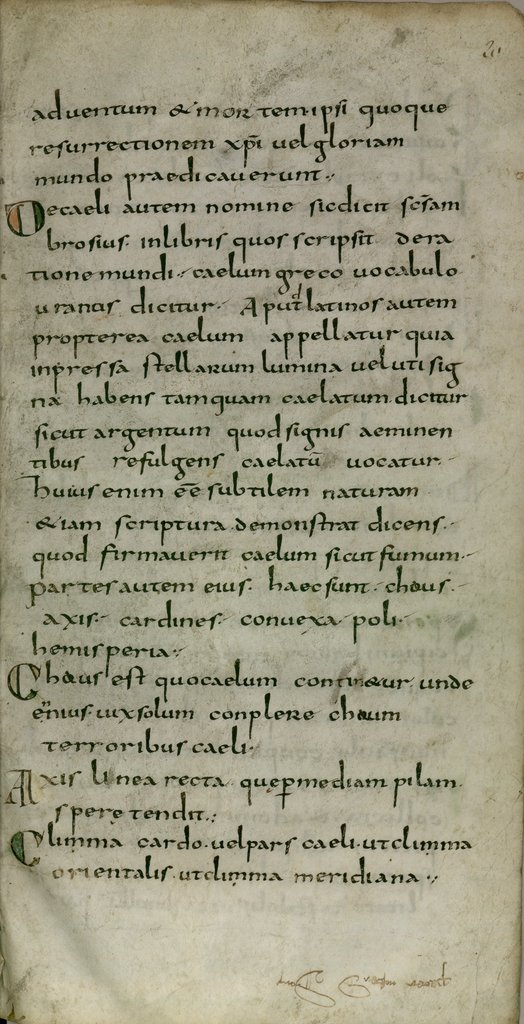 20
adventum & mortem ipsi quoque
resurrectionem xp̄i vel gloriam
mundo praedicaverunt.,
De caeli autem nomine sic dicit sc̄s am
brosius. in libris quos scripsit de ra
tione mundi. caelum greco vocabulo
uranus dicitur. Aput latinos autem
propterea caelum appellatur quia
inpressa stellarum lumina veluti sig
na habens tamquam caelatum. dicitur
sicut argentum quod signis aeminen
tibus refulgens caelatū vocatur.
huius enim ēē subtilem naturam
&iam scriptura demonstrat dicens.
quod firmaverit caelum sicut fumum.
partes autem eius. haec sunt. chous.
axis. cardines. convexa. poli.
hemisperia.,
Chous est quo caelum contin&ur. unde
ennius. vix solum conplere choum
terroribus caeli.
Axis linea recta. que p̱ mediam pilam
spere tendit.,
Climma cardo. vel pars caeli. ut climma
orientalis. ut climma meridiana.,